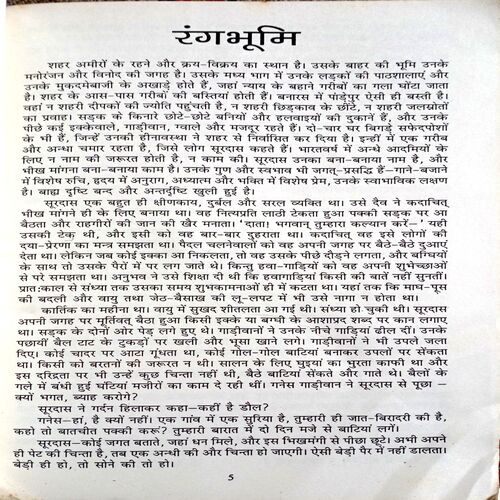 रंगभूमि
शहर अमीरों के रहने और क्रय-विक्रय का स्थान है। उसके बाहर की भूमि उनके
मनोरंजन और विनोद की जगह है। उसके मध्य भाग में उनके लड़कों की पाठशालाएं और
उनके मुकदमेबाजी के अखाड़े होते हैं, जहां न्याय के बहाने गरीबों का गला घोंटा जाता
है। शहर के आस-पास गरीबों की बस्तियां होती हैं। बनारस में पांड़ेपुर ऐसी ही बस्ती है।
वहां न शहरी दीपकों की ज्योति पहुंचती है, न शहरी छिड़काव के छींटे, न शहरी जलस्रोतों
का प्रवाह। सड़क के किनारे छोटे-छोटे बनियों और हलवाइयों की दुकानें हैं, और उनके
पीछे कई इक्केवाले, गाड़ीवान, ग्वाले और मजदूर रहते हैं। दो-चार घर बिगड़े सफेदपोशों
के भी हैं, जिन्हें उनकी हीनावस्था ने शहर से निर्वासित कर दिया है। इन्हीं में एक गरीब
और अन्धा चमार रहता है, जिसे लोग सूरदास कहते हैं। भारतवर्ष में अन्धे आदमियों के
लिए न नाम की जरूरत होती है, न काम की। सूरदास उनका बना-बनाया नाम है, और
भीख मांगना बना-बनाया काम है। उनके गुण और स्वभाव भी जगत्-प्रसिद्ध हैं—गाने-बजाने
में विशेष रुचि, हृदय में अनुराग, अध्यात्म और भक्ति में विशेष प्रेम, उनके स्वाभाविक लक्षण
है। बाह्य दृष्टि बन्द और अन्तर्दृष्टि खुली हुई है।
सूरदास एक बहुत ही क्षीणकाय, दुर्बल और सरल व्यक्ति था। उसे दैव ने कदाचित्
भीख मांगने ही के लिए बनाया था। वह नित्यप्रति लाठी टेकता हुआ पक्की सड़क पर आ
बैठता और राहगीरों की जान की खैर मनाता। 'दाता! भगवान् तुम्हारा कल्यान करें—' यही
उसकी टेक थी, और इसी को वह बार-बार दुहराता था। कदाचित् वह इसे लोगों की
दया-प्रेरणा का मन्त्र समझता था। पैदल चलनेवालों को वह अपनी जगह पर बैठे-बैठे दुआएं
देता था। लेकिन जब कोई इक्का आ निकलता, तो वह उसके पीछे दौड़ने लगता, और बग्घियों
के साथ तो उसके पैरों में पर लग जाते थे। किन्तु हवा-गाड़ियों को वह अपनी शुभेच्छाओं
से परे समझता था। अनुभव ने उसे शिक्षा दी थी कि हवागाड़ियां किसी की बातें नहीं सुनतीं।
प्रात:काल से संध्या तक उसका समय शुभकामनाओं ही में कटता था। यहां तक कि माघ-पूस
की बदली और वायु तथा जेठ-बैसाख की लू-लपट में भी उसे नागा न होता था।
कार्तिक का महीना था। वायु में सुखद शीतलता आ गई थी। संध्या हो चुकी थी। सूरदास
अपनी जगह पर मूर्तिवत् बैठा हुआ किसी इक्के या बग्घी के आशाप्रद शब्द पर कान लगाए
था। सड़क के दोनों ओर पेड़ लगे हुए थे। गाड़ीवानों ने उनके नीचे गाड़ियां ढील दीं। उनके
पछायीं बैल टाट के टुकड़ों पर खली और भूसा खाने लगे। गाड़ीवानों ने भी उपले जला
दिए। कोई चादर पर आटा गूंधता था, कोई गोल-गोल बाटियां बनाकर उपलों पर सेंकता
था। किसी को बरतनों की जरूरत न थी। सालन के लिए घुइयां का भुरता काफी था। और
इस दरिद्रता पर भी उन्हें कुछ चिन्ता नहीं थी, बैठे बाटियां सेंकते और गाते थे। बैलों के
गले में बंधी हुई घंटियां मजीरों का काम दे रही थीं। गनेस गाड़ीवान ने सूरदास से पूछा —
क्यों भगत, ब्याह करोगे?
सूरदास ने गर्दन हिलाकर कहा—कहीं है डौल?
गनेस-हां, है क्यों नहीं। एक गांव में एक सुरिया है, तुम्हारी ही जात-बिरादरी की है,
कहो तो बातचीत पक्की करूं? तुम्हारी बारात में दो दिन मजे से बाटियां लगें।
सूरदास—कोई जगत बताते, जहां धन मिले, और इस भिखमंगी से पीछा छूटे। अभी अपने
ही पेट की चिन्ता है, तब एक अन्धी की और चिन्ता हो जाएगी। ऐसी बेड़ी पैर में नहीं डालता।
बेड़ी ही हो, तो सोने की तो हो।
5